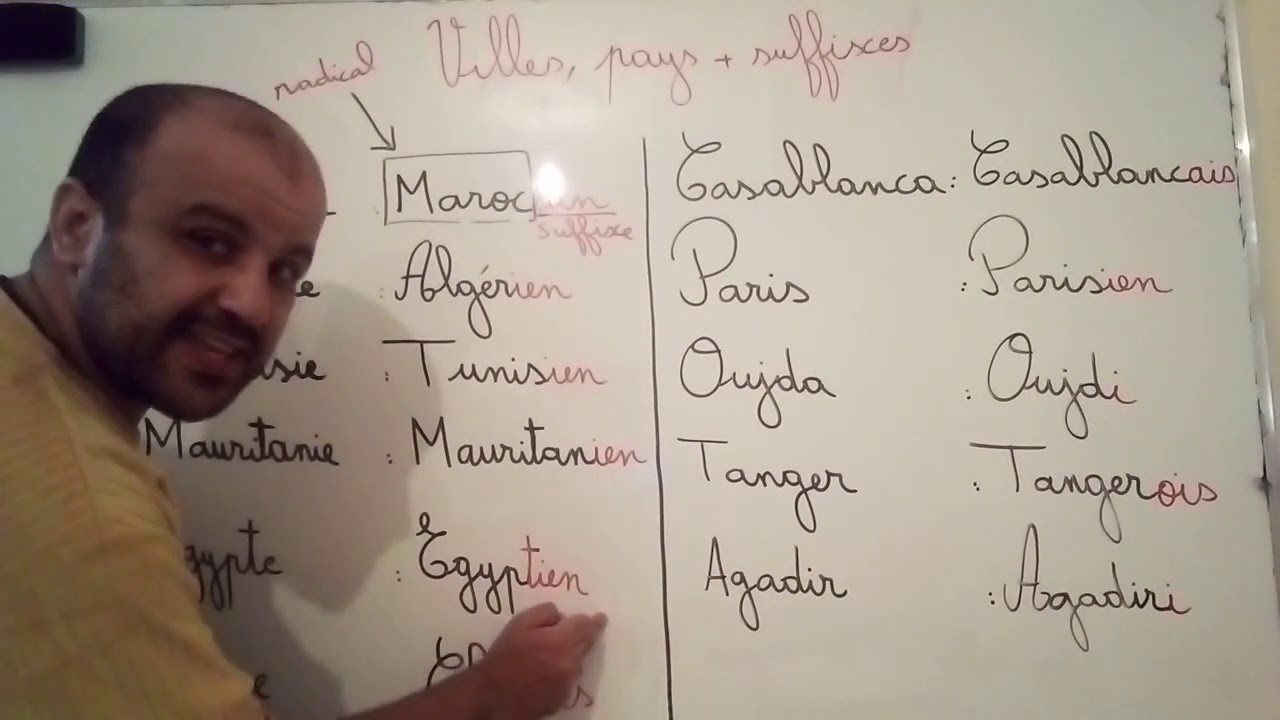 Villes, pays + suffixes
radical
Maroc
suffixe
: Algérien
: Tunisien
Mauritanie : Mauritanien
: Egyptien
Casablanca : Casablancais
Paris : Parisien
Oujda : Oujdi
Tanger : Tangerois
Agadir : Agadiri